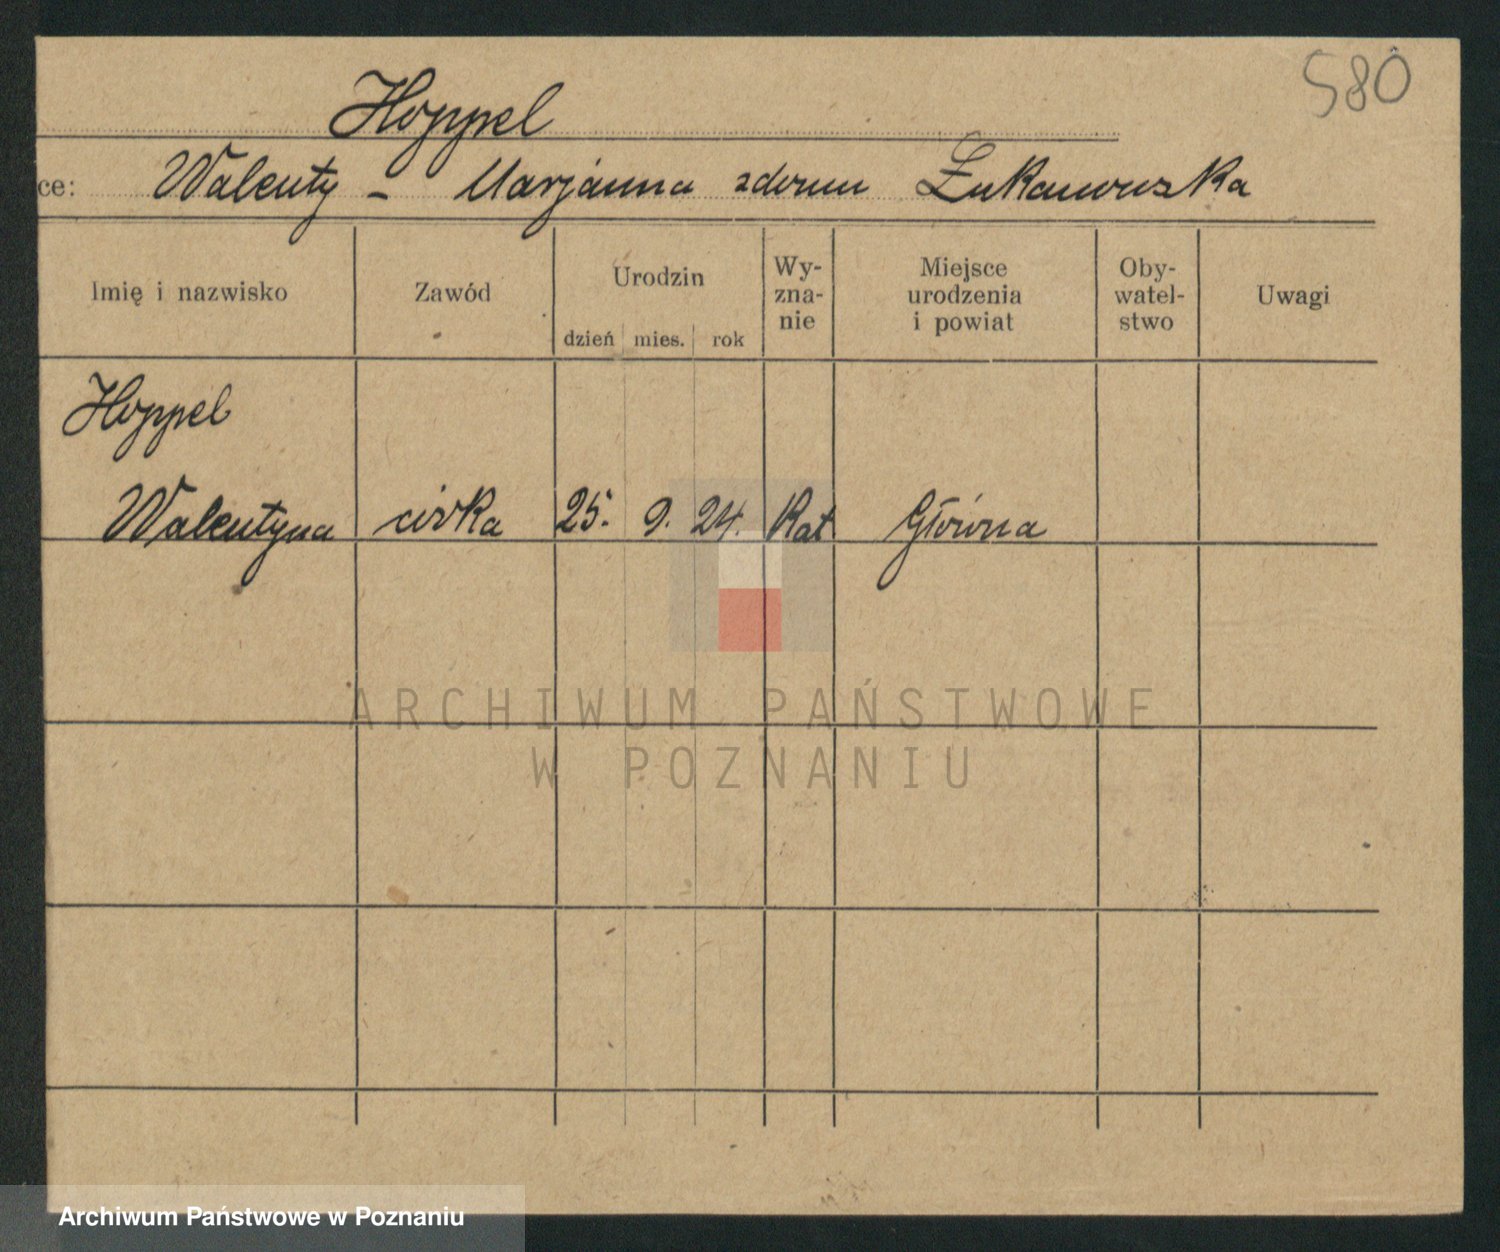 580
Hoppel
ce: Walenty - Marjanna zdomu
Imię i nazwisko
Zawód
Urodzin
dzień mies. rok
Wy-
zna-
nie
Miejsce
urodzenia
i powiat
Oby-
watel-
stwo
Uwagi
Hoppel
Walentyna córka 25. 9. 24. Kat Główna
ARCHIWUM PAŃSTWOWE
W POZNANIU
Archiwum Państwowe w Poznaniu